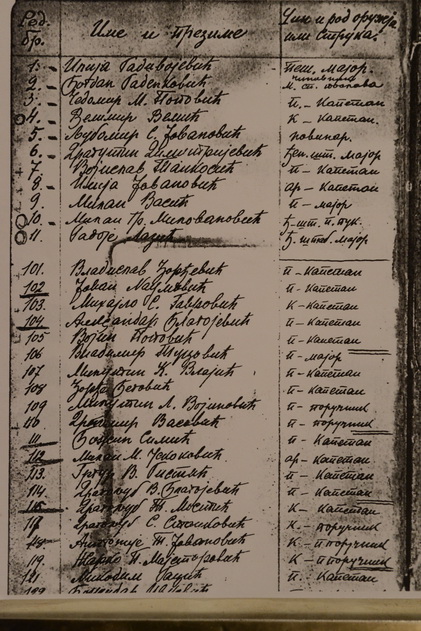 Ред. бр. Име и презиме Чин и род оружја или струка.
1. Илија Радивојевић пеш. мајор.
2. Богдан Раденковић
3. Чедомир М. Поповић п. - капетан
4. Велимир Вемић к - капетан.
5. Љубомир С. Јовановић новинар.
6. Драгутин Димитријевић ђен. шт. мајор
7. Војислав Танкосић п - капетан
8. Илија Јовановић ар - капетан
9. Милан Васић п - мајор
10. Милан Гр. Миловановић ђ. шт. п. пук.
11. Радоје Лазић ђ. штаб. мајор
101. Владислав Ђорђевић п - капетан
102 Јован Наумовић п - капетан
103. Михајло С. к - капетан
104. Александар Благојевић п - капетан
105 Војин Поповић п - капетан
106 Владимир Туцовић п - мајор
107 Милутин К. Влајић п - капетан
108 Ђорђе п - капетан
109 Милутин Л. п - поручник
110 Драгомир Васовић п - поручник
111 Божин Симић п - капетан
112 Милан М. ар - капетан
113. В. п - капетан
114. Драгољуб В. Благојевић п - капетан
115 Драгољуб К - капетан
Драгољуб С. Станковић К - поручник
Антоније Т. Јовановић К - п поручник
119. Жарко П. Мајсторовић К - п поручник
121 Миходим п. капетан